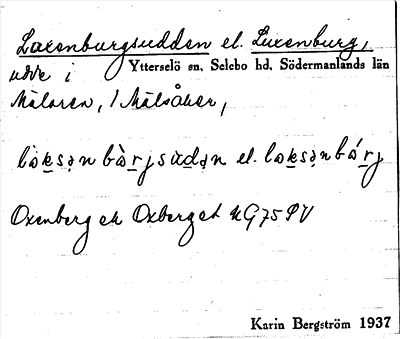 Laxenburgsudden el. Luxenburg,
udde i Ytterselö sn. Selebo hd. Södermanlands län
Mälaren, / Mälsåker,
làksən bàrjsùdən el. laksənbárj
Oxenberg ek Oxberget RG75 SV
Karin Bergström 1937